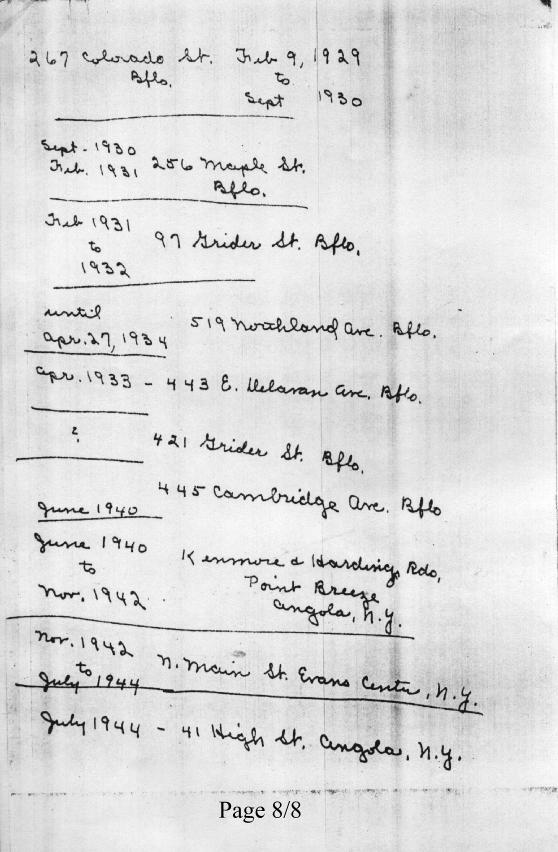 267 Colorado St. Feb 9, 1929
Bflo. to
Sept 1930
Sept. 1930
Feb. 1931 256 Maple St.
Bflo.
Feb 1931
to 97 Grider St. Bflo.
1932
until
Apr. 27, 1934 519 Northland Ave. Bflo.
Apr. 1933 - 443 E. Delavan Ave. Bflo.
?
421 Grider St. Bflo.
445 Cambridge Ave. Bflo
June 1940
June 1940 Kenmore & Hardings Rds,
to Point Breeze
Nov. 1942 Angola, N.Y.
Nov. 1942
to N. Main St. Evans Center, N.Y.
July 1944
July 1944 - 41 High St. Angola, N.Y.
Page 8/8